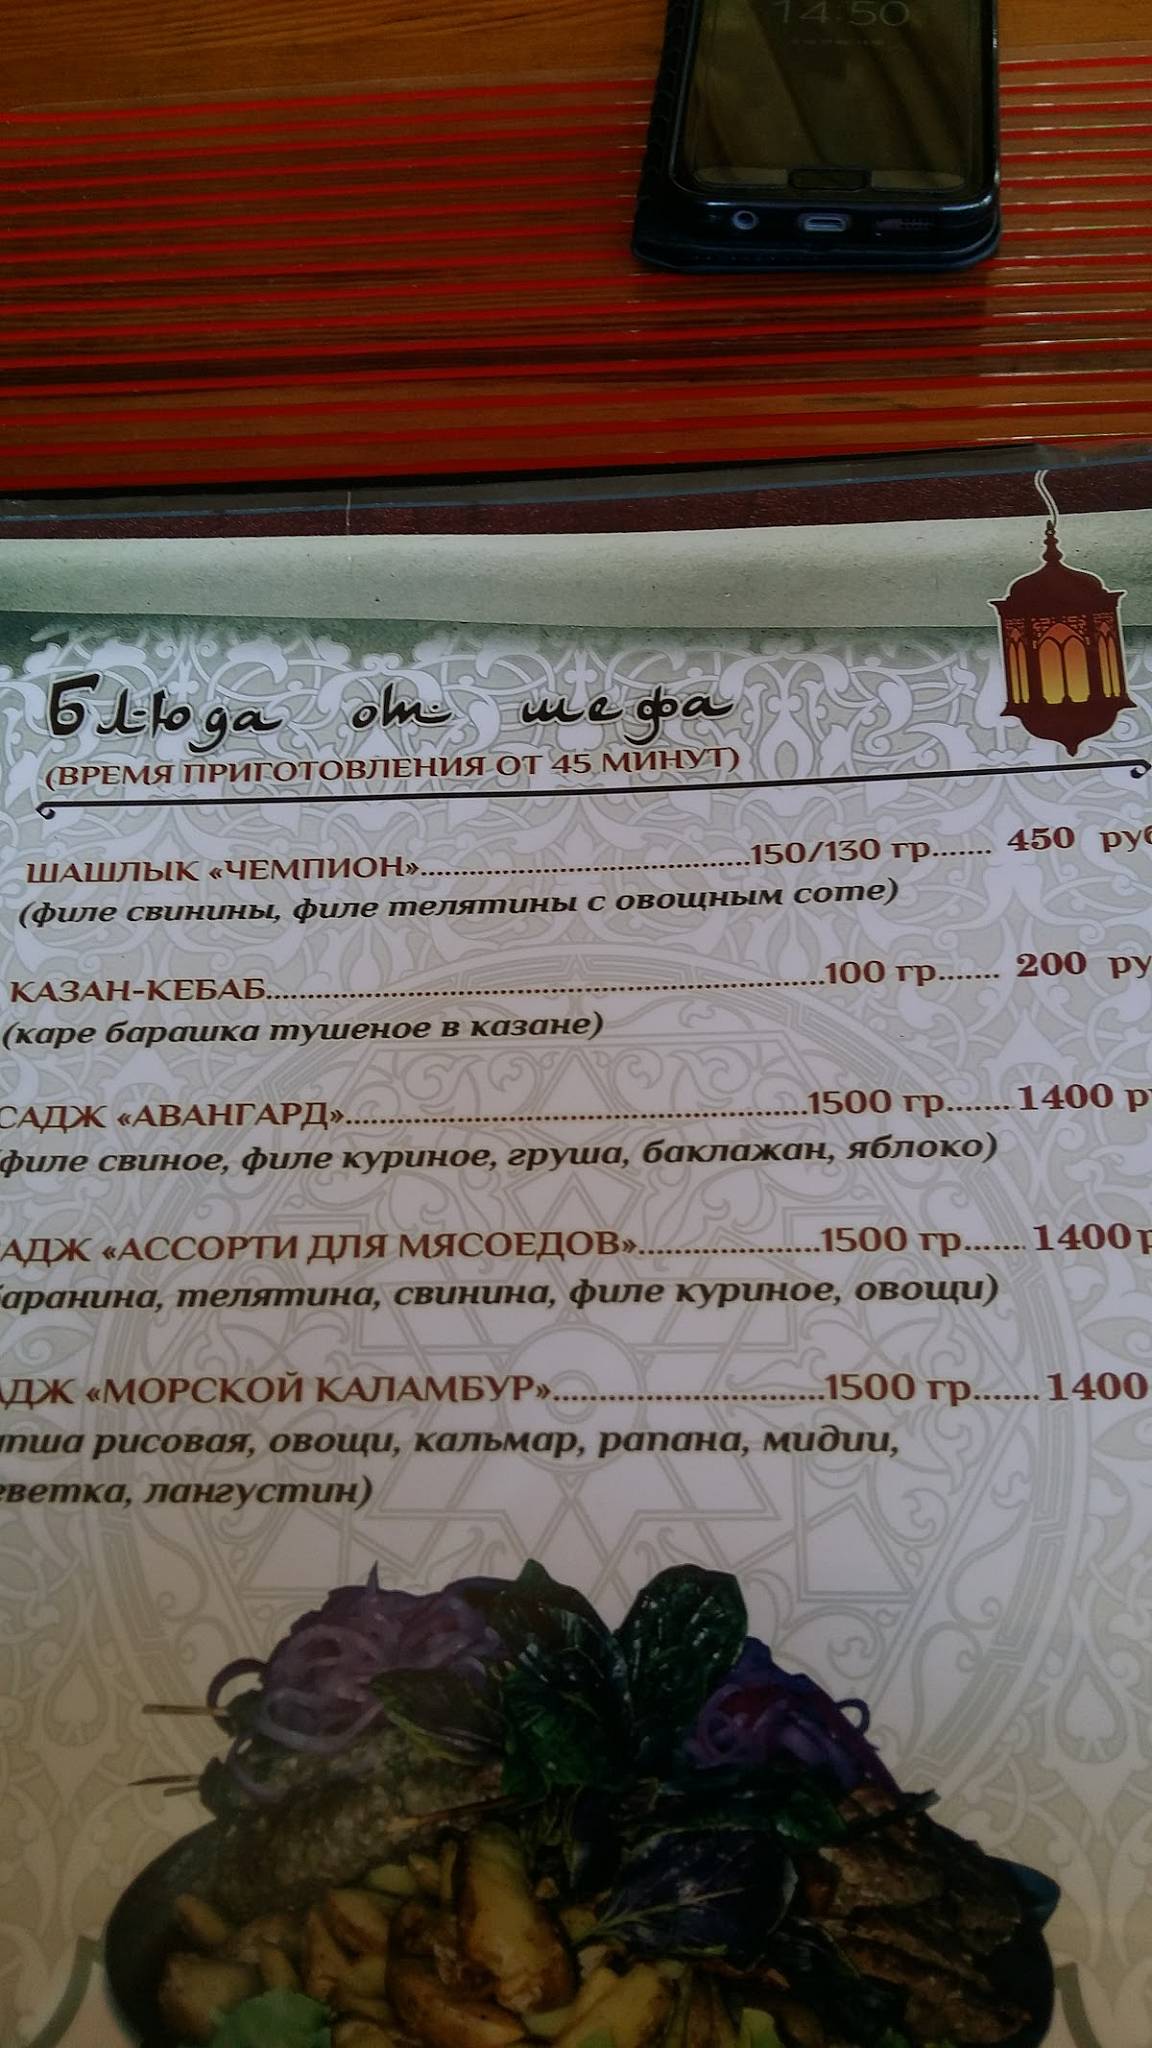 14:50
Блюда от шефа
(ВРЕМЯ ПРИГОТОВЛЕНИЯ ОТ 45 МИНУТ)
ШАШЛЫК «ЧЕМПИОН»..........150/130 гр....... 450 руб
(филе свинины, филе телятины с овощным соте)
КАЗАН-КЕБАБ..........100 гр....... 200 ру
(каре барашка тушеное в казане)
САДЖ «АВАНГАРД»..........1500 гр.......1400 ру
(филе свиное, филе куриное, груша, баклажан, яблоко)
АДЖ «АССОРТИ ДЛЯ МЯСОЕДОВ»..........1500 гр.......1400 р
баранина, телятина, свинина, филе куриное, овощи)
АДЖ «МОРСКОЙ КАЛАМБУР»..........1500 гр.......1400
пша рисовая, овощи, кальмар, рапана, мидии,
еветка, лангустин)